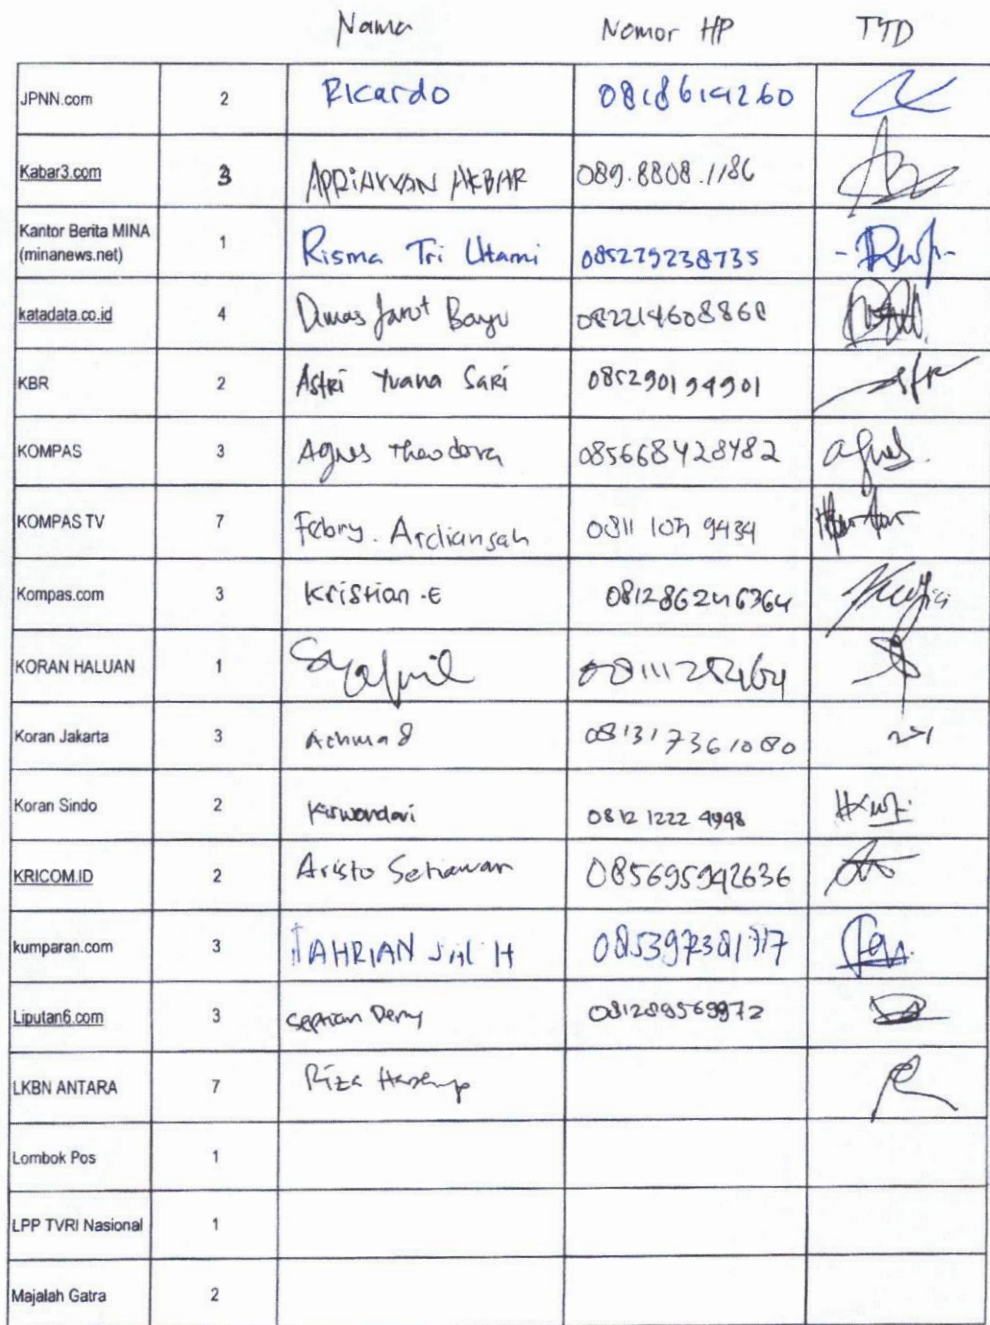 Nama Nomor HP TTD
JPNN.com 2 Ricardo
Kabar3.com 3 APRIAWAN AKBAR 089.8808.1186
Kantor Berita MINA
(minanews.net) 1 Risma Tri Utami 085279238735
katadata.co.id 4 Dimas Jarot Bayu
KBR 2 Astri Yuana Sari 085290194901
KOMPAS 3 Agnes Theodora 085668428482
KOMPAS TV 7 Febry. Ardiansah
Kompas.com 3 Kristian .E 081286246364
KORAN HALUAN 1
Koran Jakarta 3 Achmad 081317361080
Koran Sindo 2 Kiswondari 0812 1222 4998
KRICOM.ID 2 Aristo Setiawan 085695942636
kumparan.com 3
Liputan6.com 3 Septian Deny 081289569972
LKBN ANTARA 7 Riza
Lombok Pos 1
LPP TVRI Nasional 1
Majalah Gatra 2